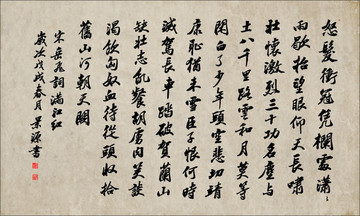 怒髮衝冠凭欄處瀟〻
雨歇抬望眼仰天長嘯
壯懷激烈三十功名塵與
土八千里路雲和月莫等
閒白了少年頭空悲切靖
康恥猶未雪臣子恨何時
滅駕長車踏破賀蘭山
缺壯志飢餐胡虜肉笑談
渴飲匈奴血待從頭收拾
舊山河朝天闕
宋岳飛詞滿江紅
歲次戊戌春月景源書